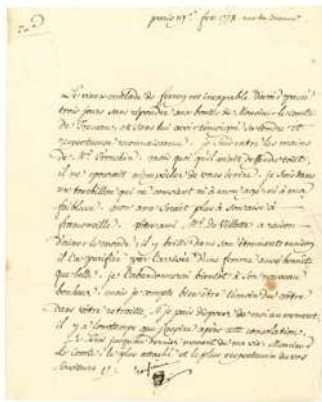 paris 17e. fev. 1778.
Le vieux malade de ferney est incapable d'avoir passé
trois jours sans répondre aux bontés de Monsieur le comte
de et sans lui avoir témoigné sa tendre et
respectueuse reconnaissance. je suis entre les mains
de Mr. Tronchin. mais quoi qu'il m'ait deffendu tout,
il ne pourait m'empécher de vous écrire. je suis dans
un tourbillon qui ne convient ni à mon age, ni à ma
faiblesse. mon ame serait plus à son aise à
franconville. Mr. de Villette a raison
d'aimer le monde; il y brille dans son élément
il l'a purifié par d'une femme aussi honnête
que belle. je l'abandonnerai bientôt à son nouveau
bonheur. mais je compte bien être témoin du vôtre
dans vôtre retraitte, si je puis disposer de moi un moment.
il y a longtemps que je soupire après cette consolation.
je serai jusqu'au dernier moment de ma vie, Monsieur
Le Comte, le plus attaché et le plus respectueux de vos
serviteurs